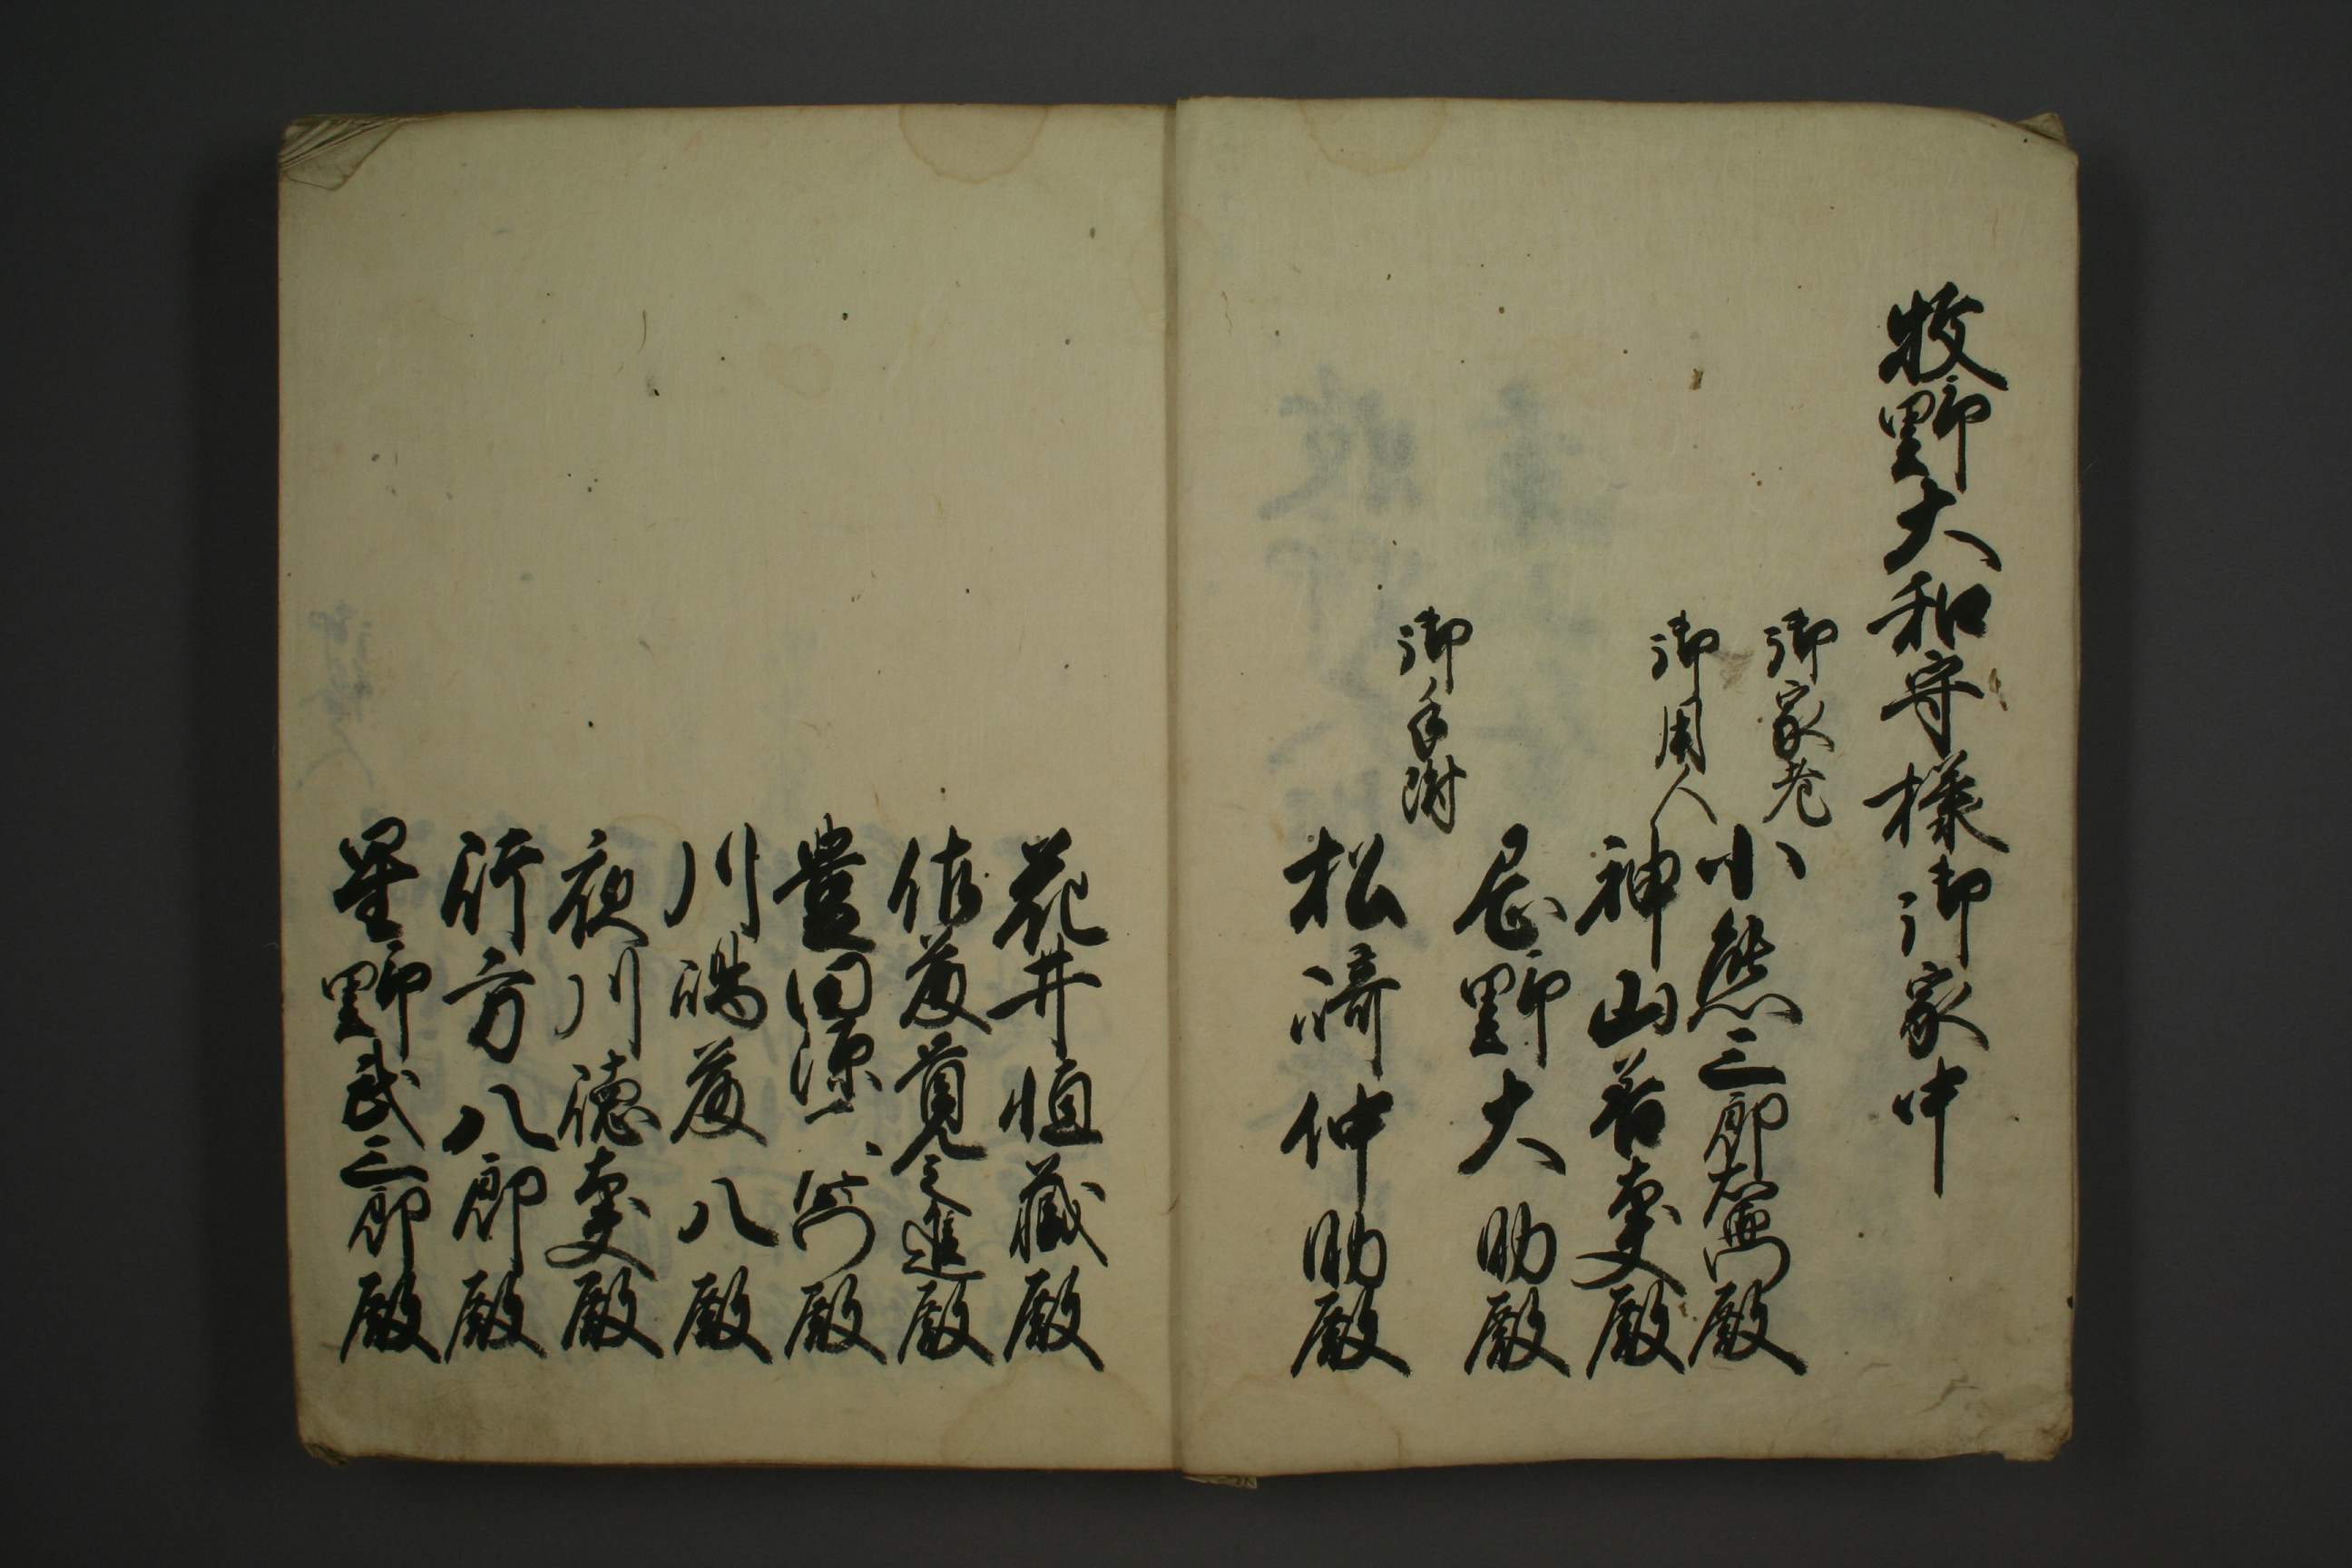 牧野大和守様御家中
御家老
小熊三郎右衛門殿
御用人
神山若曳殿
忍野大助殿
御手附
松崎仲助殿
花井恒蔵殿
佐藤覚之進殿
豊田源一兵衛殿
川嶋藤八殿
夜川徳曳殿
行方八郎殿
星野武三郎殿